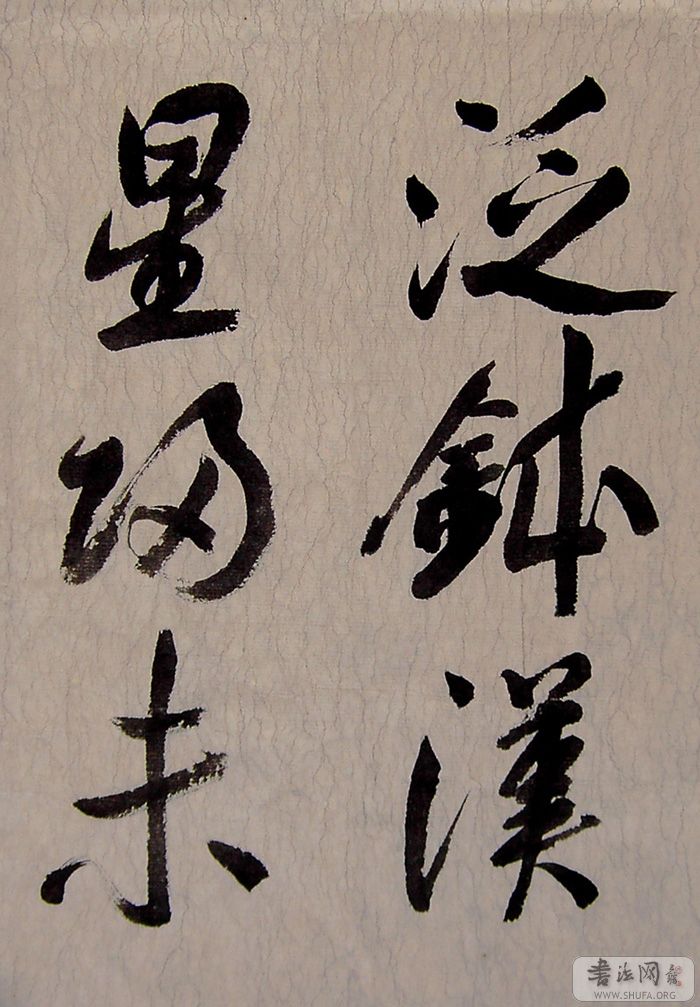 泛鉢漢
星歸未
書法网
WWW.SHUFA.ORG